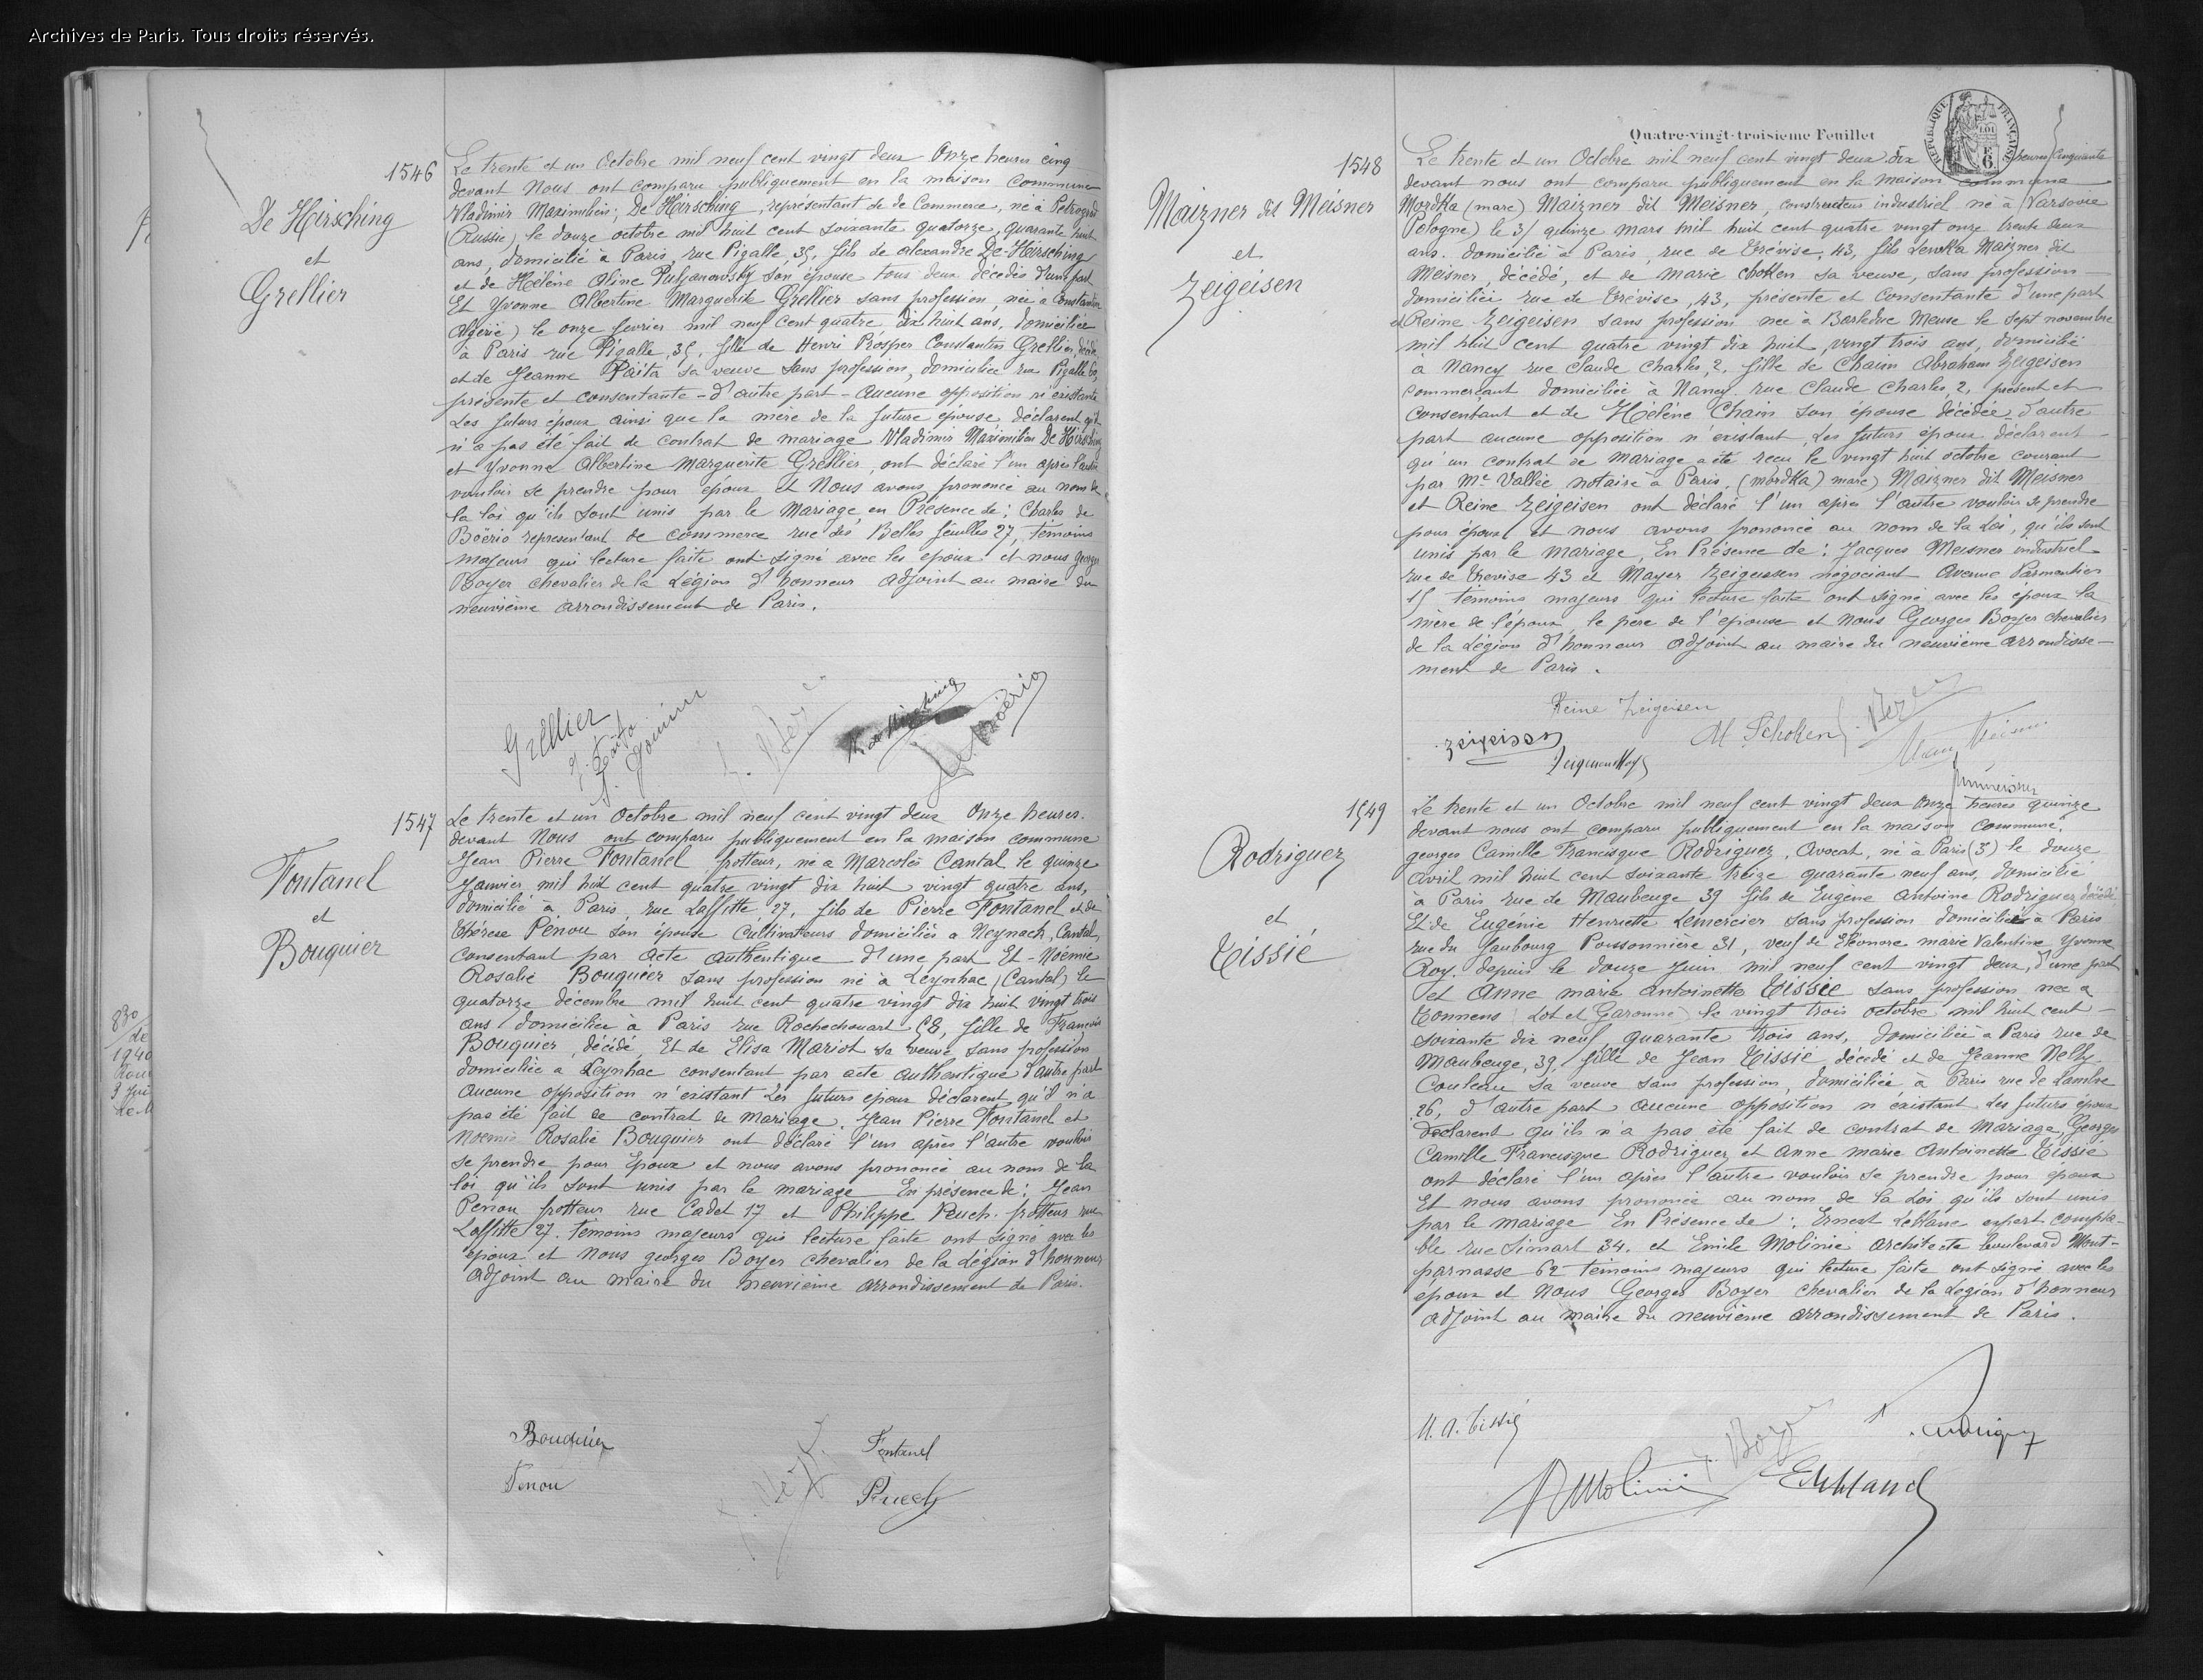 Archives de Paris. Tous droits réservés.
1546
De Hirsching
et
Grellier
Le trente et un Octobre mil neuf cent vingt deux Onze heures cinq
devant Nous ont comparu publiquement en la maison commune
Vladimir Maximilien, De Hirsching, représentant de de Commerce, né à Petrograd
(Russie) le douze octobre mil huit cent soixante quatorze, quarante huit
ans, domicilié à Paris, rue Pigalle, 35, fils de Alexandre De Hirsching
et de Hélène Aline Puljanowsky son épouse tous deux décédés d'une part
Et Yvonne Albertine Marguerite Grellier sans profession, née à Constantine
Algérie) le onze février mil neuf cent quatre, dix huit ans, domiciliée
à Paris rue Pigalle, 35, fille de Henri Prosper Constantin Grellier, décédé
et de Jeanne Païta sa veuve sans profession, domiciliée rue Pigalle
présente et consentante - d'autre part - Aucune opposition n'éxistante
Les futurs époux ainsi que la mère de la future épouse déclarent qu'il
n'a pas été fait de contrat de mariage Vladimir Maximilien De Hirsching
et Yvonne Albertine Marguerite Grellier, ont déclaré l'un après l'autre
vouloir se prendre pour époux et Nous avons prononcé au nom de
la loi qu'ils sont unis par le Mariage en Présence de : Charles de
Boërio représentant de commerce rue des Belles feuilles 27, témoins
majeurs qui lecture faite ont signé avec les époux et nous Georges
Boyer chevalier de la Légion d'honneur adjoint au maire du
neuvième arrondissement de Paris.
Grellier
1547
Fontanel
et
Bouquier
Le trente et un Octobre mil neuf cent vingt deux Onze heures.
devant Nous ont comparu publiquement en la maison commune
Jean Pierre Fontanel frotteur, né à Marcolès Cantal le quinze
Janvier mil huit cent quatre vingt dix huit vingt quatre ans,
domicilié à Paris, rue Laffitte, 27, fils de Pierre Fontanel et de
Thérèse Pénou son épouse Cultivateurs domiciliés à Neynach, Cantal,
consentant par acte authentique d'une part Et - Noémie
Rosalie Bouquier sans profession né à Leynhac (Cantal) le
quatorze décembre mil huit cent quatre vingt dix huit vingt trois
ans domiciliée à Paris rue Rochechouart 58, fille de François
Bouquier, décédé, Et de Elisa Mariot sa veuve sans profession
domiciliée à Leynhac consentant par acte authentique d'autre part
Aucune opposition n'existant Les futurs époux déclarent qu'il n'a
pas été fait de contrat de Mariage. Jean Pierre Fontanel et
Noémie Rosalie Bouquier ont déclaré l'un après l'autre vouloir
se prendre pour Epoux et nous avons prononcé au nom de la
loi qu'ils sont unis par le mariage En présence de : Jean
Penou frotteur rue Cadet 17 et Philippe Puech. frotteur rue
Laffitte 27. témoins majeurs qui lecture faite ont signé avec les
époux et Nous georges Boyer chevalier de la Légion d'honneur
adjoint au maire du neuvième arrondissement de Paris.
Bouquier
Fontanel
Penou
Puech
Quatre-vingt-troisième Feuillet
RÉPUBLIQUE FRANÇAISE
LOI
1548
Maizner dit Meisner
et
Zeigeisen
Le trente et un Octobre mil neuf cent vingt deux dix heures cinquante
devant nous ont comparu publiquement en la maison commune
Mordka (marc) Maizner dit Meisner, constructeur industriel né à Varsovie
Pologne) le 3/ quinze mars mil huit cent quatre vingt onze trente deux
ans. domicilié à Paris, rue de Trévise, 43, fils Lewka Maizner dit
Meisner, décédé, et de Marie Choken sa veuve, sans profession
domiciliée rue de Trévise, 43, présente et consentante d'une part
et Reine Zeigeisen sans profession née à Barleduc Meuse le sept novembre
mil huit cent quatre vingt dix huit, vingt trois ans, domicilié
à Nancy rue Claude Charles, 2, fille de Chaim Abraham Zeigeisen
commerçant domiciliée à Nancy rue Claude Charles 2, présent et
consentant et de Hélène Chain son épouse décédée d'autre
part aucune opposition n'existant, Les futurs époux déclarent
qu'un contrat de Mariage a été reçu le vingt huit octobre courant
par Me Vallée notaire à Paris, (mordka) marc) Maizner dit Meisner
et Reine Zeigeisen ont déclaré l'un après l'autre vouloir se prendre
pour époux et nous avons prononcé au nom de la Loi, qu'ils sont
unis par le Mariage, En Présence de : Jacques Meisner industriel
rue de Trevise 43 et Mayer Zeigeisen négociant Avenue Parmentier
15 témoins majeurs qui lecture faite ont signé avec les époux la
mère de l'époux, le père de l'épouse et Nous Georges Boyer chevalier
de la Légion d'honneur adjoint au maire du neuvième arrondisse-
ment de Paris.
Reine Zeigeisen
M Schoken
1549
Rodriguez
et
Tissié
Le trente et un Octobre mil neuf cent vingt deux Onze heures quinze
devant nous ont comparu publiquement en la maison commune.
georges Camille Francisque Rodriguez, Avocat, né à Paris (3) le douze
avril mil huit cent soixante treize quarante neuf ans, domicilié
à Paris rue de Maubeuge 39 fils de Eugène Antoine Rodriguez décédé
Et de Eugénie Henriette Lemercier sans profession domiciliée à Paris
rue du Faubourg Poissonnière 31, veuf de Eléonore marie Valentine Yvonne
Roy. depuis le douze Juin mil neuf cent vingt deux, d'une part
et Anne marie Antoinette Tissié sans profession née à
Tonneins Lot et Garonne) le vingt trois octobre mil huit cent
soixante dix neuf, quarante trois ans, domiciliée à Paris rue de
Maubeuge, 39, fille de Jean Tissié décédé et de Jeanne Nelly
Couleau sa veuve sans profession, domiciliée à Paris rue de Lambre
26, d'autre part Aucune opposition n'éxistant Les futurs époux
Declarent qu'ils n'a pas été fait de contrat de Mariage, Georges
Camille Francisque Rodriguez et anne marie Antoinette Tissié
ont déclaré l'un après l'autre vouloir se prendre pour époux
Et nous avons prononcé au nom de la Loi qu'ils sont unis
par le mariage En Présence de : Ernest Leblanc expert compta-
ble rue Simart 34. et Emile Molinié Architecte boulevard Mont-
parnasse 62 témoins majeurs qui lecture faite ont signé avec les
époux et Nous Georges Boyer chevalier de la Légion d'honneur
adjoint au maire du neuvième arrondissement de Paris.